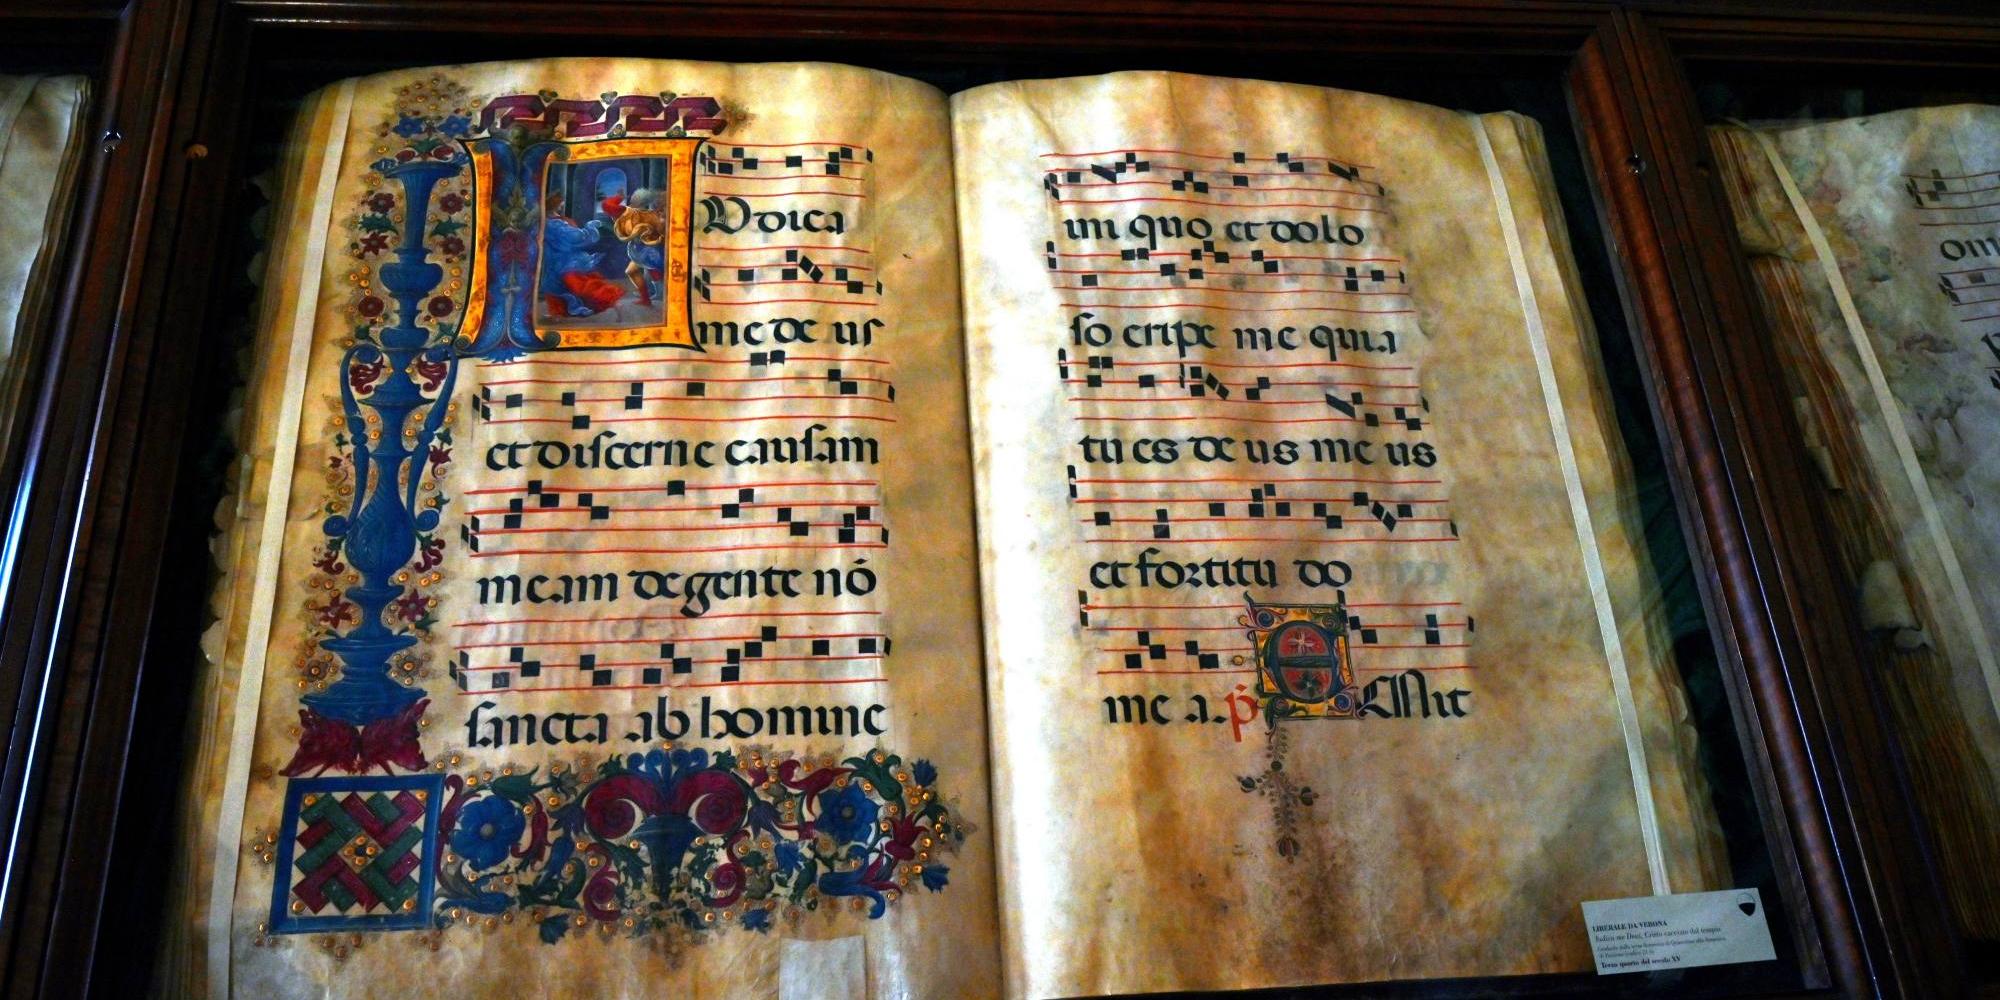 IVdica
me de us
et discerne causam
meam de gente nō
sancta ab homine
ini quo et dolo
so eripe me quia
tu es de us me us
et fortitu do
me a. p̄ EMit
om
LIBERALE DA VERONA
Iudica me Deus, Cristo cacciato dal tempio
Graduale dalla terza domenica di Quaresima alla domenica
Terzo quarto del secolo XV